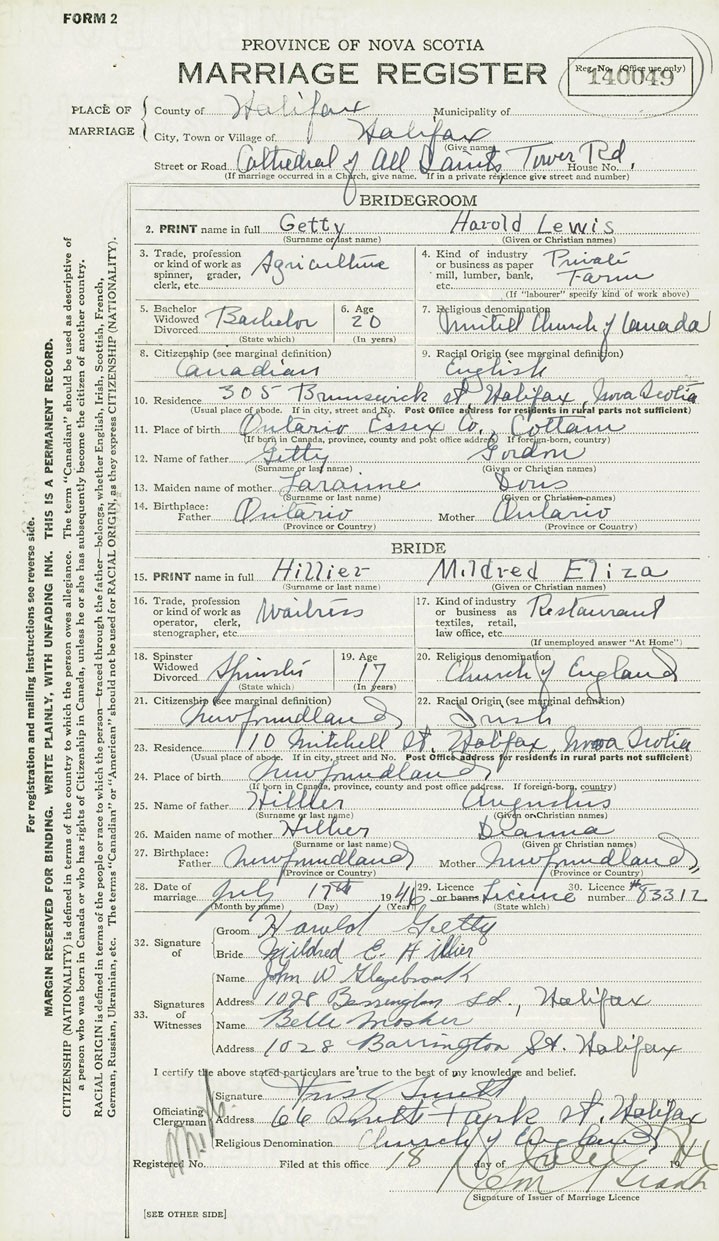 FORM 2
PROVINCE OF NOVA SCOTIA
MARRIAGE REGISTER
Reg. No. (Office use only)
140049
PLACE OF MARRIAGE
County of Halifax Municipality of
City, Town or Village of Halifax
(Give name)
Street or Road Cathedral of All Saints, Tower Rd. House No.
(If marriage occurred in a Church, give name. If in a private residence give street and number)
BRIDEGROOM
2. PRINT name in full Getty Harold Lewis
(Surname or last name) (Given or Christian names)
3. Trade, profession or kind of work as spinner, grader, clerk, etc. Agriculture
4. Kind of industry or business as paper mill, lumber, bank, etc. Private Farm
(If "labourer" specify kind of work above)
5. Bachelor Widowed Divorced Bachelor
(State which)
6. Age 20
(In years)
7. Religious denomination
United Church of Canada
8. Citizenship (see marginal definition)
Canadian
9. Racial Origin (see marginal definition)
English
10. Residence 305 Brunswick st Halifax, Nova Scotia
(Usual place of abode. If in city, street and No. Post Office address for residents in rural parts not sufficient)
11. Place of birth Ontario Essex Co., Cottam
(If born in Canada, province, county and post office address. If foreign-born, country)
12. Name of father Getty Gordon
(Surname or last name) (Given or Christian names)
13. Maiden name of mother Doris
(Surname or last name) (Given or Christian names)
14. Birthplace: Father Ontario Mother Ontario
(Province or Country) (Province or Country)
BRIDE
15. PRINT name in full Hillier Mildred Eliza
(Surname or last name) (Given or Christian names)
16. Trade, profession or kind of work as operator, clerk, stenographer, etc. Waitress
17. Kind of industry or business as textiles, retail, law office, etc. Restaurant
(If unemployed answer "At Home")
18. Spinster Widowed Divorced Spinster
(State which)
19. Age 17
(In years)
20. Religious denomination
Church of England
21. Citizenship (see marginal definition)
Newfoundland
22. Racial Origin (see marginal definition)
Irish
23. Residence 110 Mitchell St. Halifax, Nova Scotia
(Usual place of abode. If in city, street and No. Post Office address for residents in rural parts not sufficient)
24. Place of birth Newfoundland
(If born in Canada, province, county and post office address. If foreign-born, country)
25. Name of father Hillier Augustus
(Surname or last name) (Given or Christian names)
26. Maiden name of mother Hillier Dianna
(Surname or last name) (Given or Christian names)
27. Birthplace: Father Newfoundland Mother Newfoundland
(Province or Country) (Province or Country)
28. Date of marriage July 1946
(Month by name) (Day) (Year)
29. Licence or banns Licence
(State which)
30. Licence number #83312
32. Signature of
Groom Harold Getty
Bride Mildred E. Hillier
33. Signatures of Witnesses
Name John W
Address 1028 St., Halifax
Name Belle Mosher
Address 1028 Barrington St. Halifax
I certify the above stated particulars are true to the best of my knowledge and belief.
Officiating Clergyman
Signature Smith
Address 66 South Park st. Halifax
Religious Denomination Church of England
Registered No. Filed at this office 18 day of July 1946
Signature of Issuer of Marriage Licence
[SEE OTHER SIDE]
For registration and mailing instructions see reverse side.
MARGIN RESERVED FOR BINDING. WRITE PLAINLY, WITH UNFADING INK. THIS IS A PERMANENT RECORD.
CITIZENSHIP (NATIONALITY) is defined in terms of the country to which the person owes allegiance. The term "Canadian" should be used as descriptive of
a person who was born in Canada or who has rights of Citizenship in Canada, unless he or she has subsequently become the citizen of another country.
RACIAL ORIGIN is defined in terms of the people or race to which the person—traced through the father—belongs, whether English, Irish, Scottish, French,
German, Russian, Ukrainian, etc. The terms "Canadian" or "American" should not be used for RACIAL ORIGIN, as they express CITIZENSHIP (NATIONALITY).